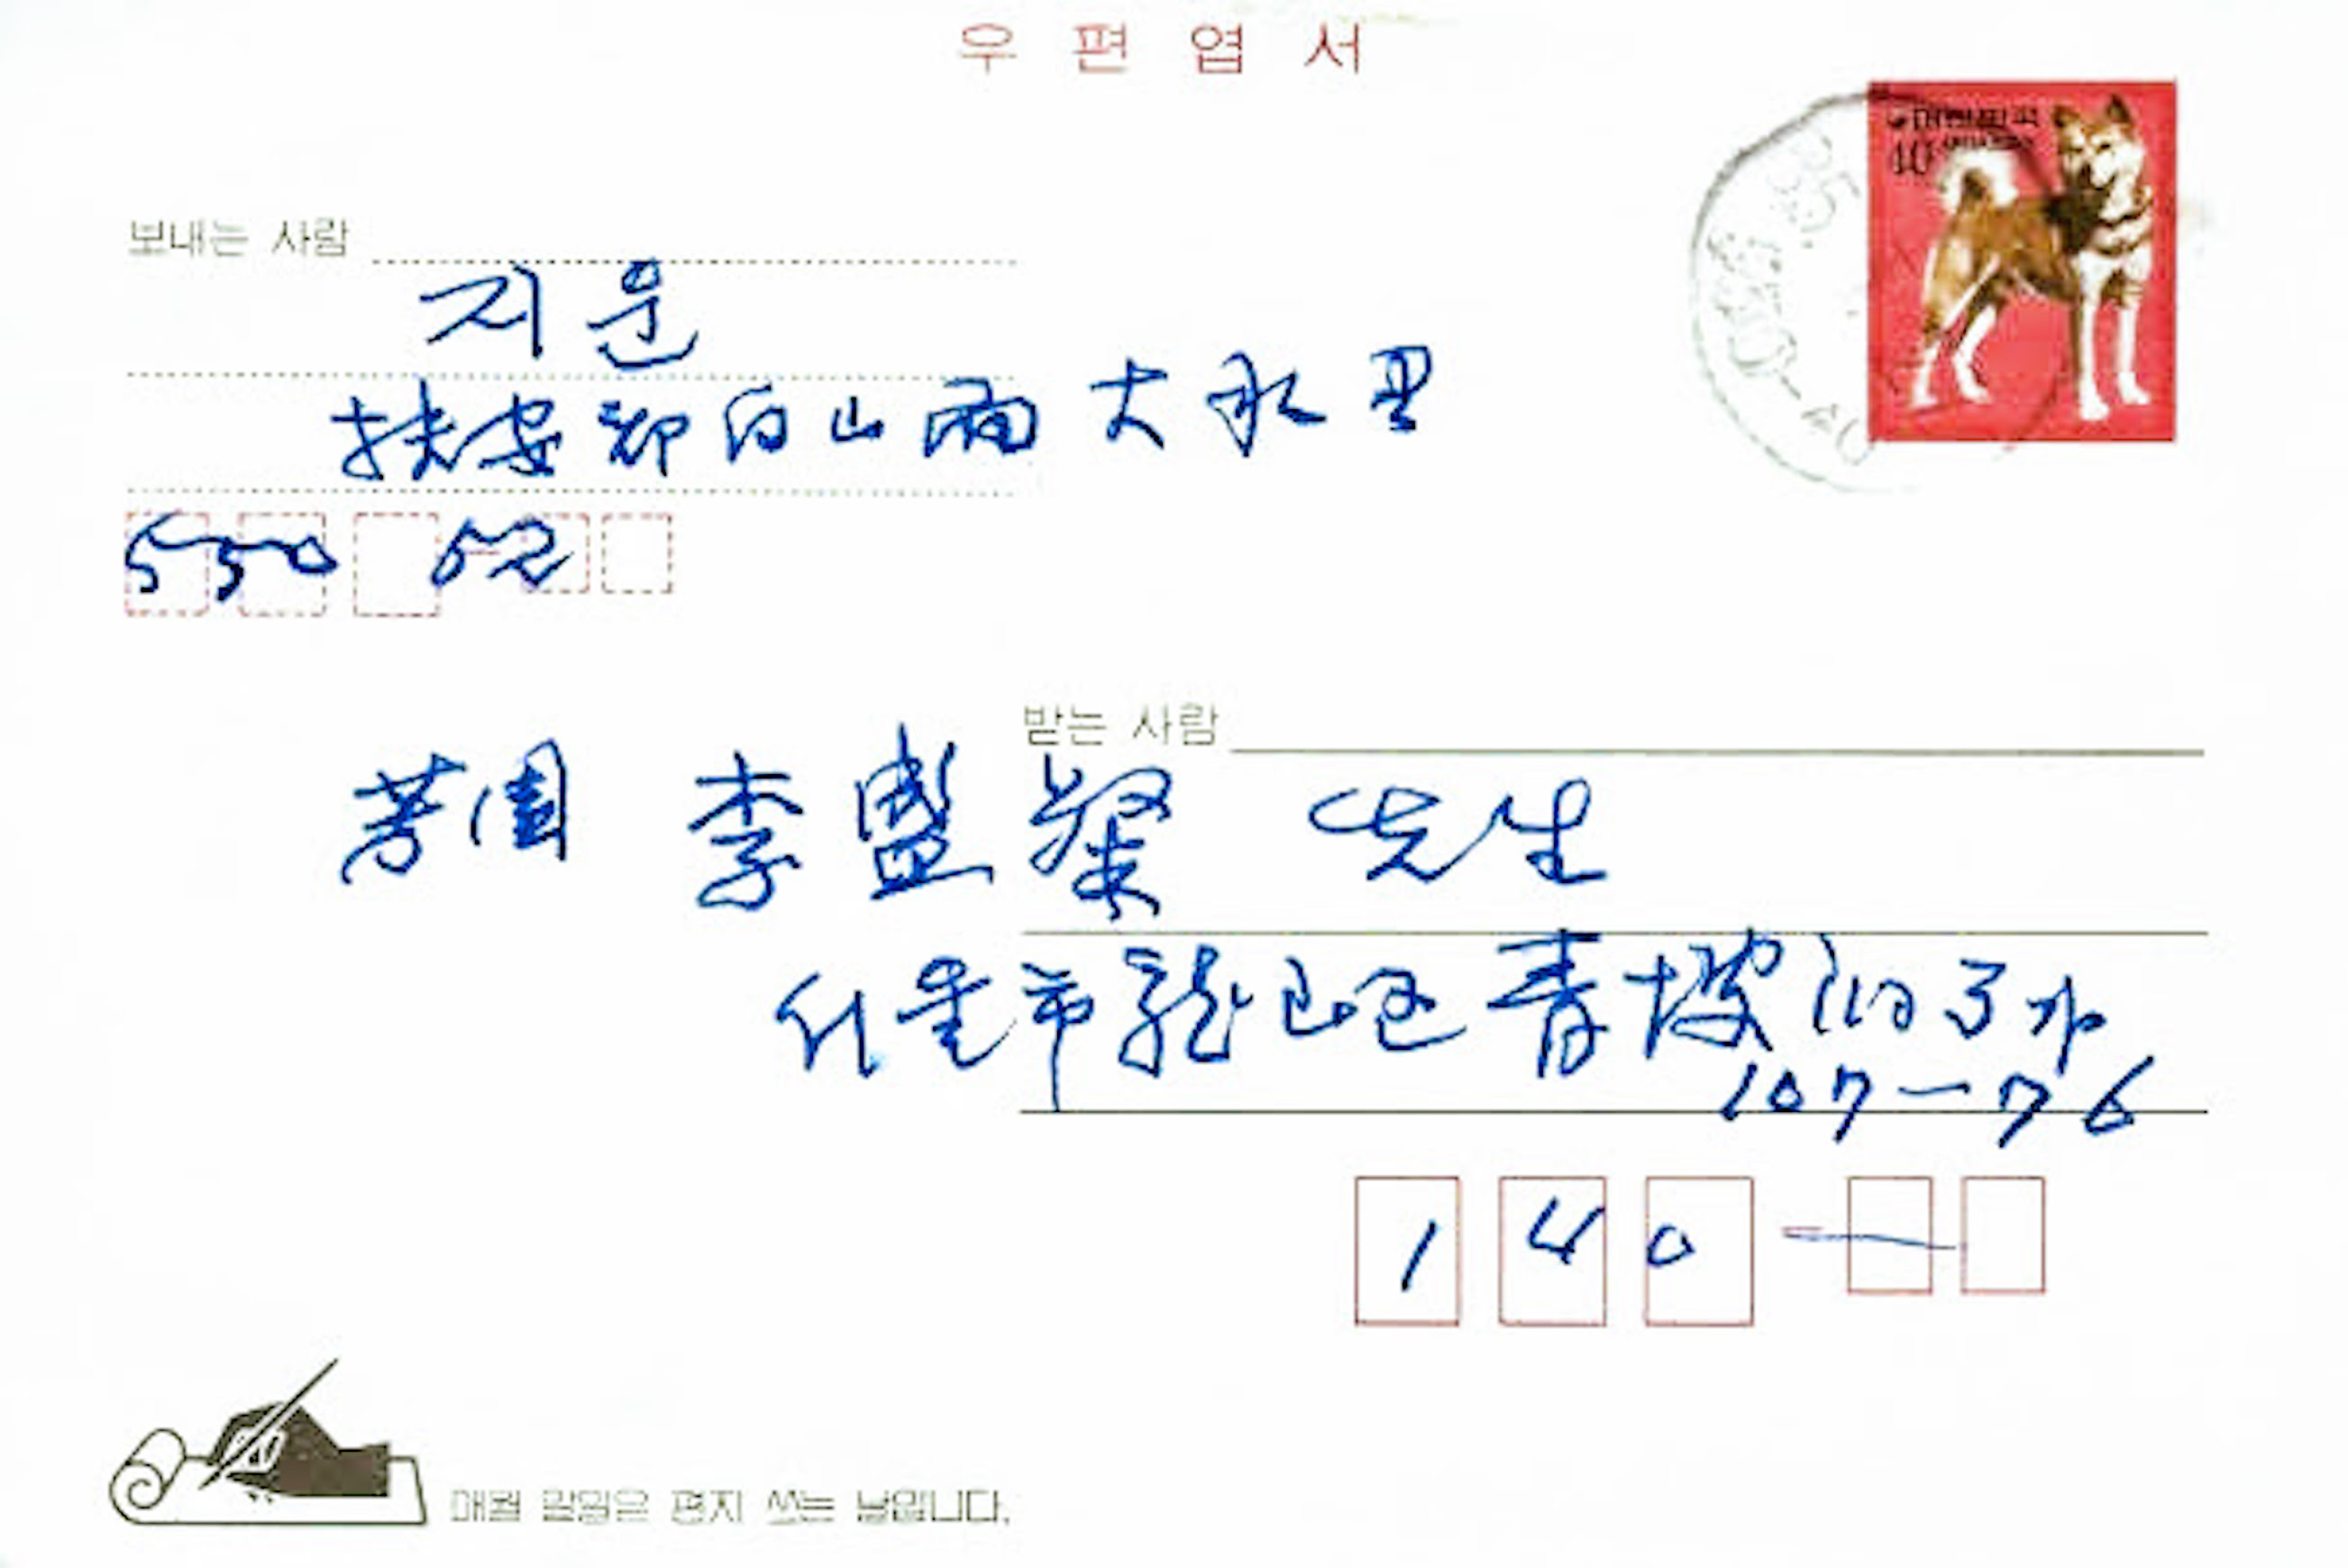 우편엽서
대한민국
40
보내는 사람
지운
扶安郡白山面大水里
550 52
받는 사람
芳園 李盛粲 先生
서울市龍山区青坡洞3가
107-76
140-
매월 말일은 편지 쓰는 날입니다.